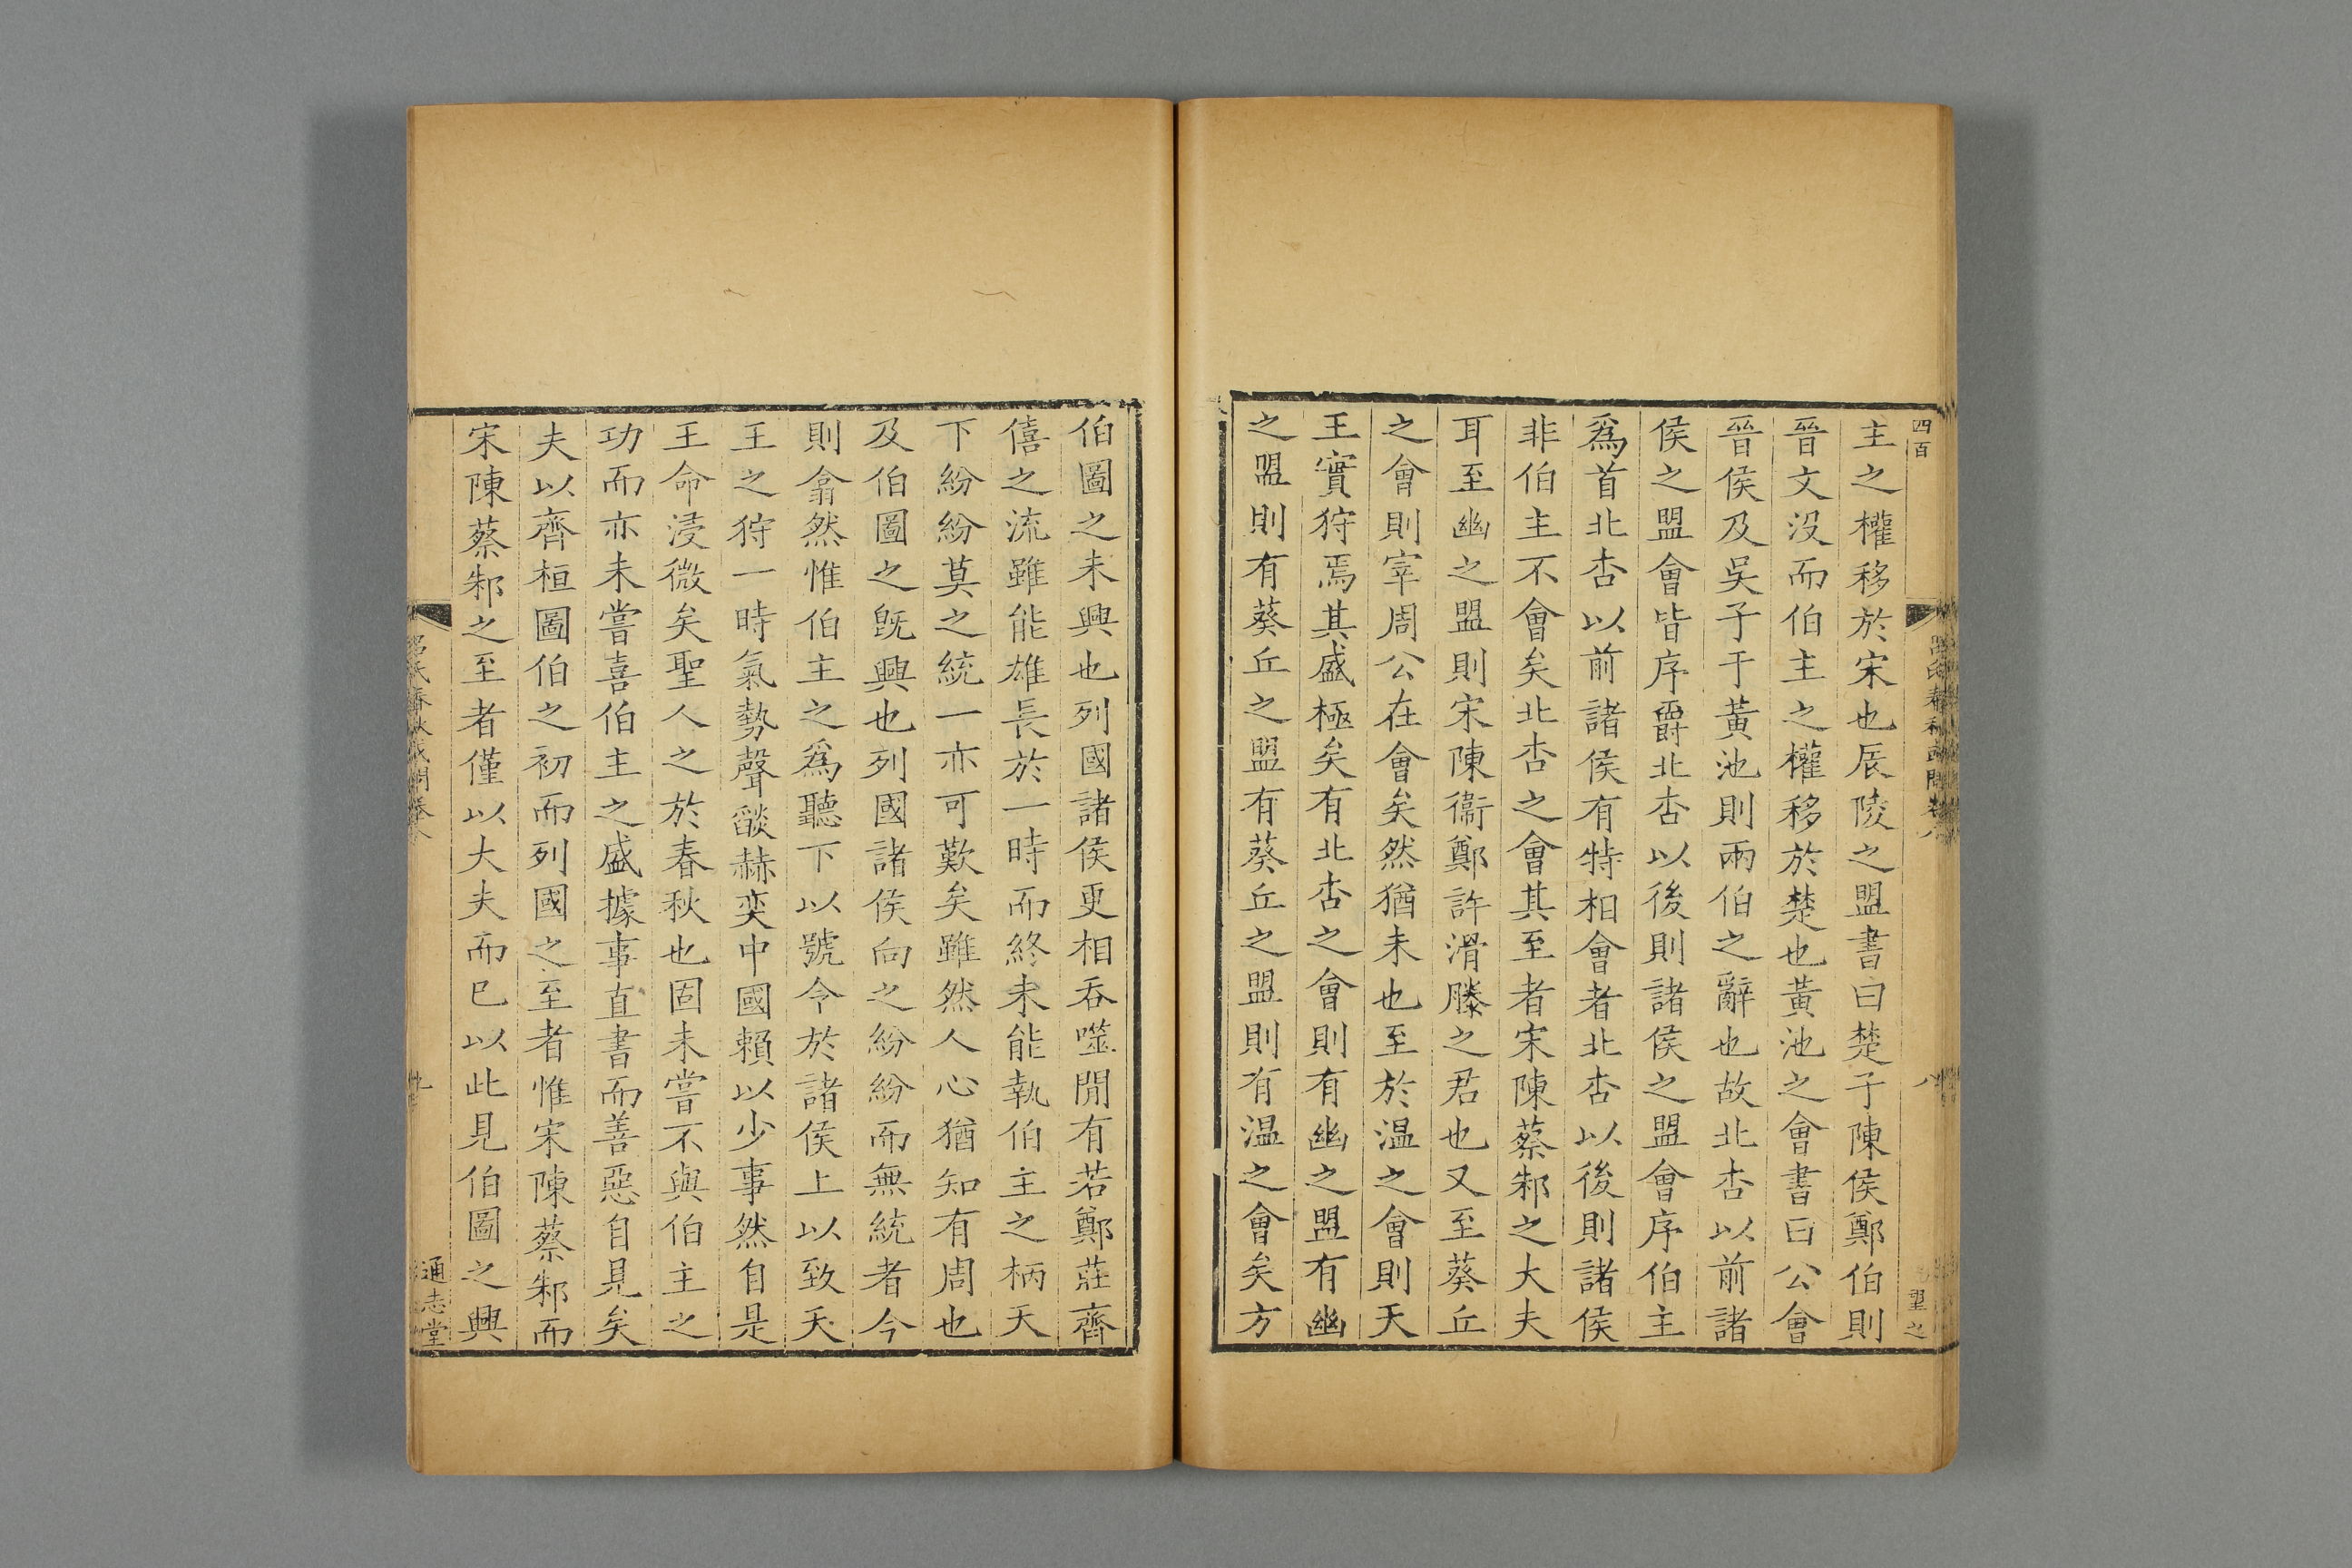 四百
主之權移於宋也辰陵之盟書曰楚子陳侯鄭伯則
晉文没而伯主之權移於楚也黃池之會書曰公會
晉侯及吳子于黃池則兩伯之辭也故北杏以前諸
侯之盟會皆序爵北杏以後則諸侯之盟會序伯主
爲首北杏以前諸侯有特相會者北杏以後則諸侯
非伯主不會矣北杏之會其至者宋陳蔡邾之大夫
耳至幽之盟則宋陳衞鄭許滑滕之君也又至葵丘
之會則宰周公在會矣然猶未也至於温之會則天
王實狩焉其盛極矣有北杏之會則有幽之盟有幽
之盟則有葵丘之盟有葵丘之盟則有温之會矣方
伯圖之未興也列國諸侯更相吞噬閒有若鄭莊齊
僖之流雖能雄長於一時而終未能執伯主之柄天
下紛紛莫之統一亦可歎矣雖然人心猶知有周也
及伯圖之旣興也列國諸侯向之紛紛而無統者今
則翕然惟伯主之爲聽下以號令於諸侯上以致天
王之狩一時氣勢聲燄赫奕中國賴以少事然自是
王命浸微矣聖人之於春秋也固未嘗不與伯主之
功而亦未嘗喜伯主之盛據事直書而善惡自見矣
夫以齊桓圖伯之初而列國之至者惟宋陳蔡邾而
宋陳蔡邾之至者僅以大夫而已以此見伯圖之興
通志堂